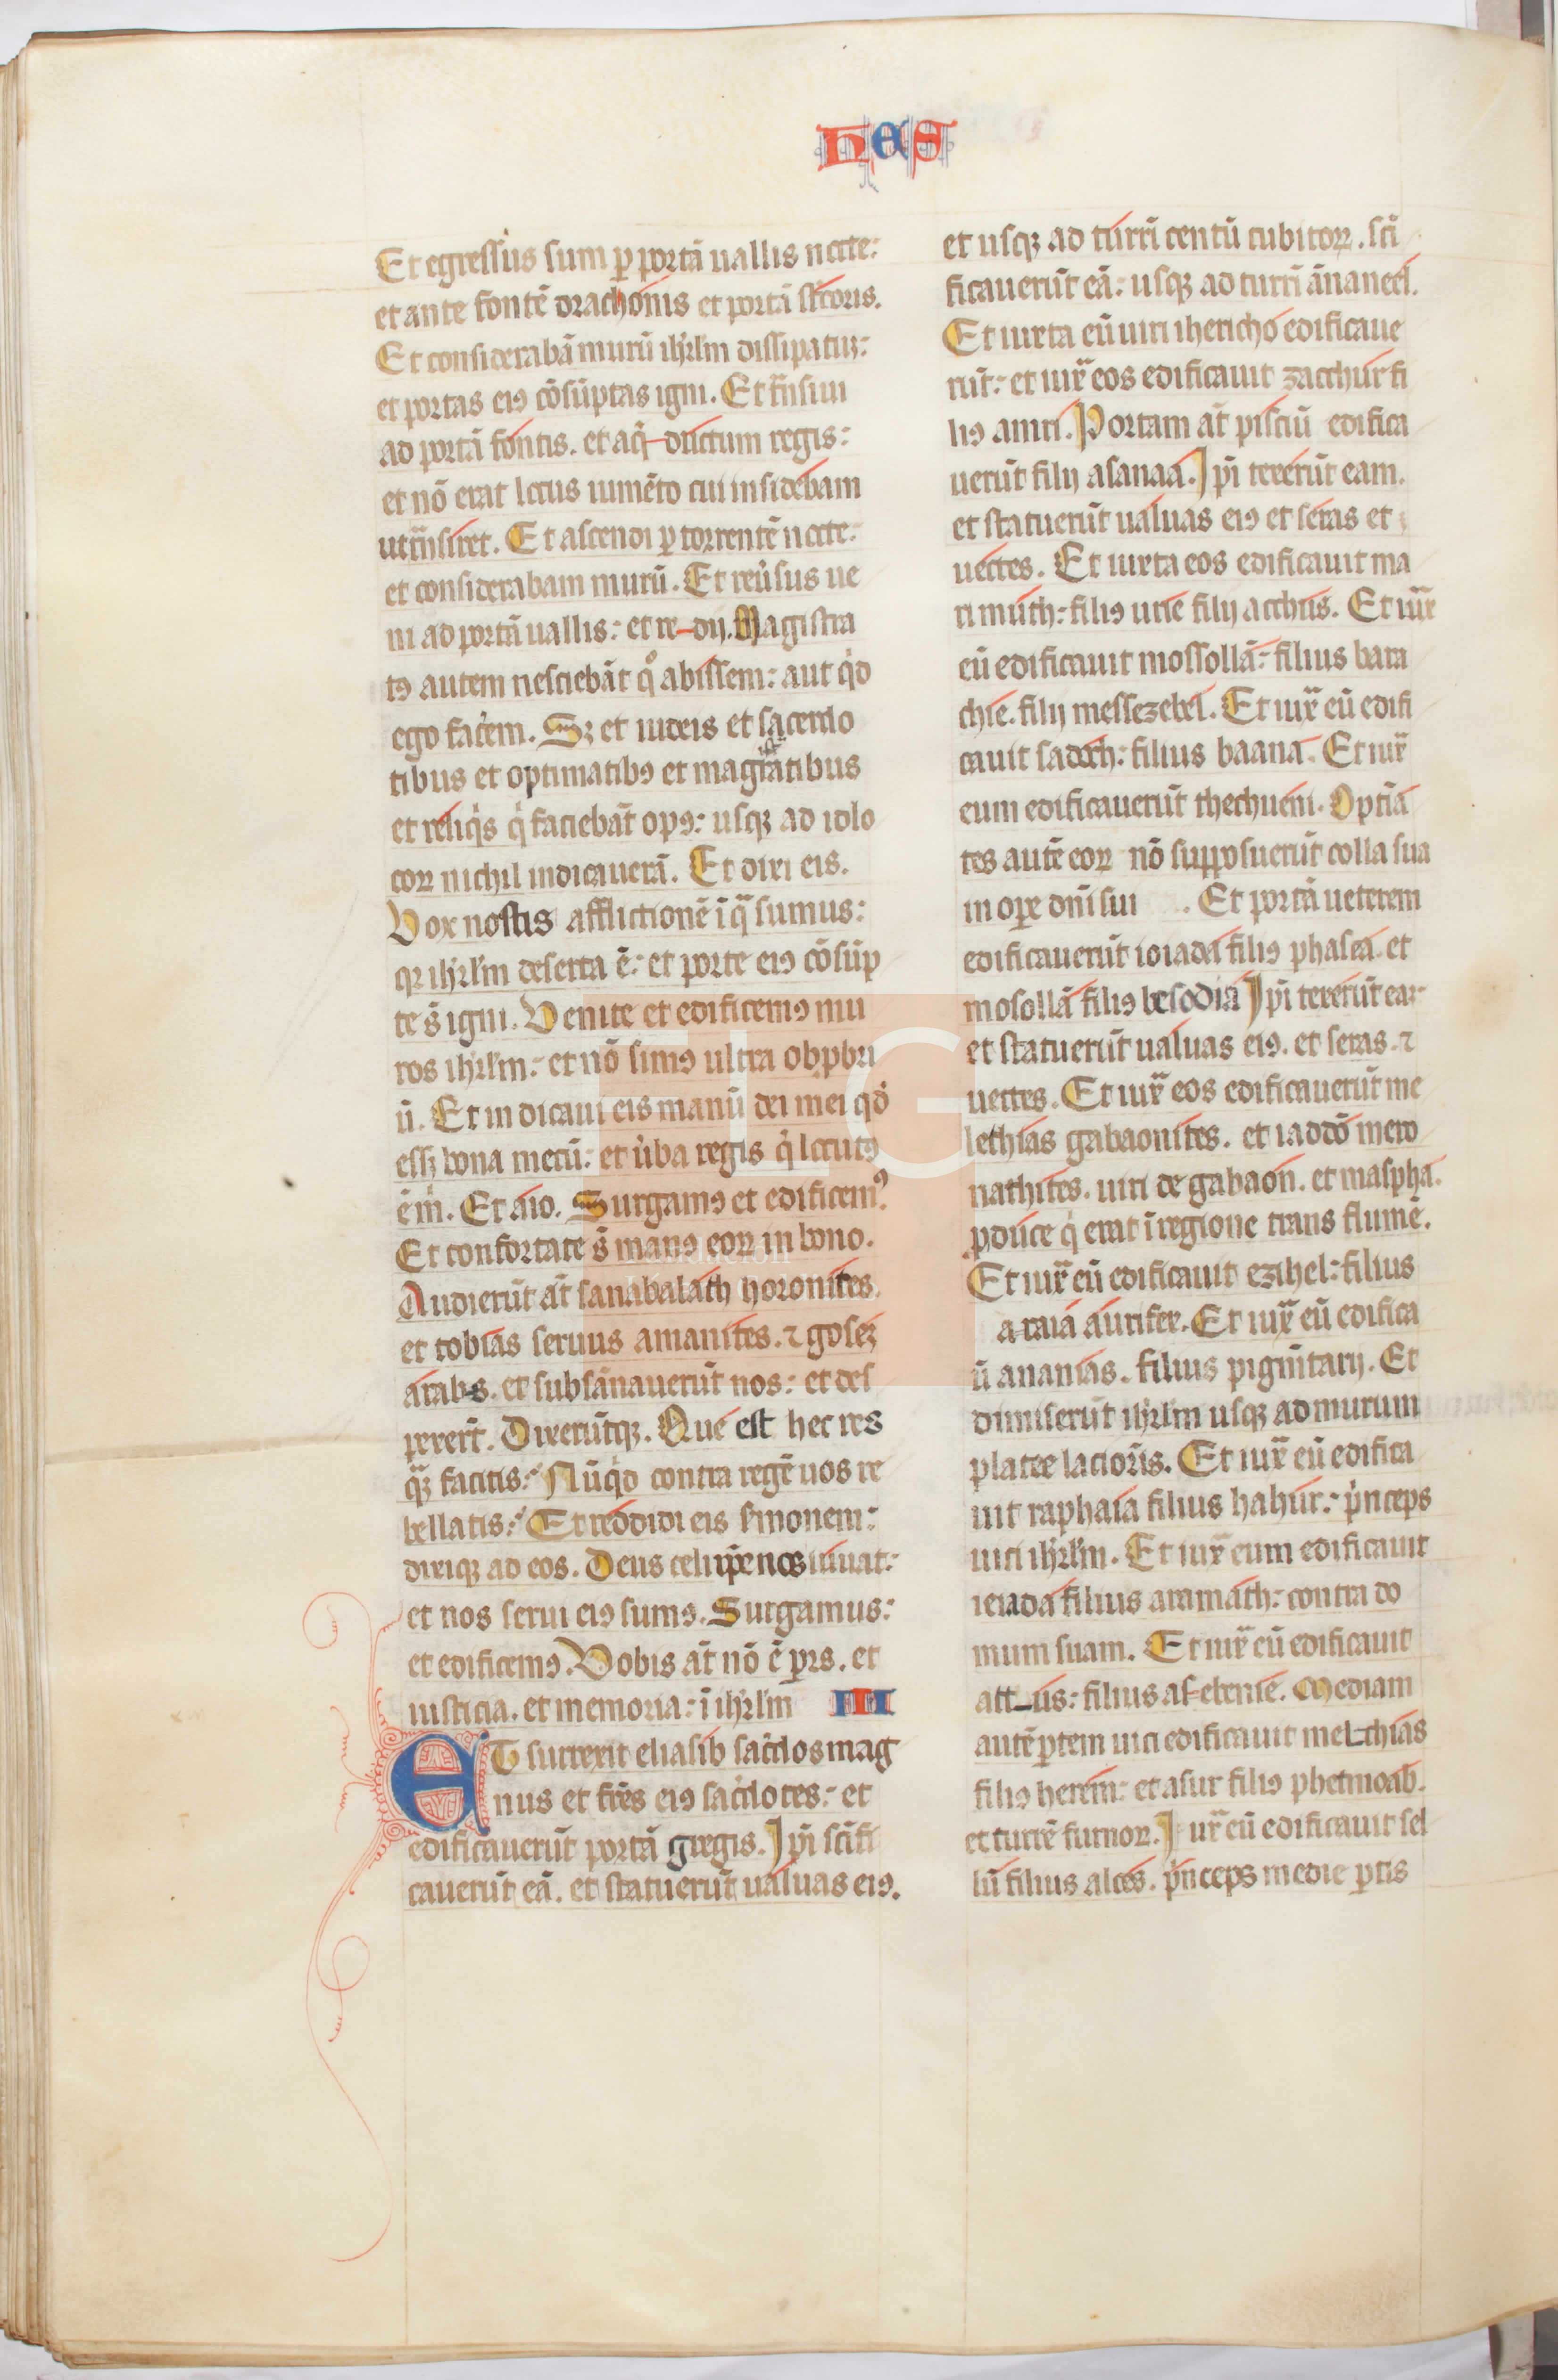 has
Et egressus sum ꝑ portā uallis nocte:
et ante fontē drachonis et portā stercoris.
Et considerabā murū ihrlm dissipatuꝫ:
et portas eiꝰ cōsūptas igni. Et trnsiui
ad portā fontis. et aq̄ductum regis:
et nō erat locus iumēto cui insidebam
ut trnsiret. Et ascendi ꝑ torrentē nocte:
et considerabam murū. Et reuˀsus ue
ni ad portā uallis: et redij. Magistra
tꝰ autem nesciebāt qͦ abissem: aut qd
ego facˀem. Sꝫ et iudeis et sacerdo
tibus et optimatibꝰ et magistratibus
et reliqˢ qͥ faciebāt opꝰ: usqꝫ ad id lo
coꝝ nichil indicauerā. Et dixi eis.
Vox nostis afflictionē ī qͣ sumus:
qꝛ ihrlm deserta ē: et porte eiꝰ cōsūp
te s̄ igni. Venite et edificemꝰ mu
ros ihrlm: et nō simꝰ ultra obpbri
ū. Et indicaui eis manū dei mei qd
essꝫ bona mecū: et uˀba regis qͥ locutꝰ
ē m̄. Et aio. Surgamꝰ et edificemꝰ
Et confortate s̄ manꝰ eoꝝ in bono.
Audierūt āt sanabalath horonites.
et tobias seruus amanites. ⁊ goseꝫ
arabs. et subsānauerūt nos: et des
pexerˀt. Dixerūtqꝫ. Que est hec res
qͣꝫ facitis: Nūqd contra regē uos re
bellatis: Et reddidi eis sˀmonem:
dixiqꝫ ad eos. Deus celi ip̄e nos iuuat:
et nos serui eiꝰ sumꝰ. Surgamus:
et edificemꝰ. Vobis āt nō ē ꝑs. et
iusticia. et memoria: ī ihrlm III
ET surrexit eliasib sacˀdos mag
nus et fr̄es eiꝰ sacˀdotes: et
edificauerūt portā gregis. Ipi scīfi
cauerūt eā. et statuerūt ualuas eiꝰ.
et usqꝫ ad turrī centū cubitoꝝ. scī
ficauerūt eā: usqꝫ ad turrī ānaneel.
Et iuxta eū uiri ihericho edificaue
rūt: et iux̄ eos edificauit zacchur fi
liꝰ amri. Portam āt pisciū edifica
uerūt filij asanaa. Ipi texerūt eam.
et statuerūt ualuas eiꝰ et seras et
uectes. Et iuxta eos edificauit ma
rimuth: filiꝰ urie filij acchus. Et iux̄
eū edificauit mosollā: filius bara
chie. filij messezebel. Et iux̄ eū edifi
cauit sadoch: filius baana. Et iux̄
eum edificauerūt thechueni. Optīa
tes autē eoꝝ nō supposuerūt colla sua
in oꝑe dn̄i sui . Et portā ueterem
edificauerūt ioiada filiꝰ phasea. et
mosollā filiꝰ besodia Ipi texerūt eā:
et statuerūt ualuas eiꝰ. et seras. ⁊
uectes. Et iux̄ eos edificauerūt me
lethias gabaonites. et iaddō mero
nathites. uiri de gabaon. et maspha.
ꝓ duce qͥ erat ī regione trans flumē.
Et iux̄ eū edificauit ezihel: filius
araia aurifex. Et iux̄ eū edifica
ū ananias. filius pigmtarij. Et
dimiserūt ihrlm usqꝫ ad murum
platee lacioris. Et iux̄ eū edifica
uit raphaia filius hahur: pˀnceps
uici ihrlm. Et iux̄ eum edificauit
ieiada filius aramath: contra do
mum suam. Et iux̄ eū edificauit
attus: filius asebenie. Mediam
autē ꝑtem uici edificauit melchias
filiꝰ herem: et asur filiꝰ phetmoab.
et turrē furnoꝝ. Iux̄ eū edificauit sel
lū filius aloes. pˀnceps medie ꝑtis